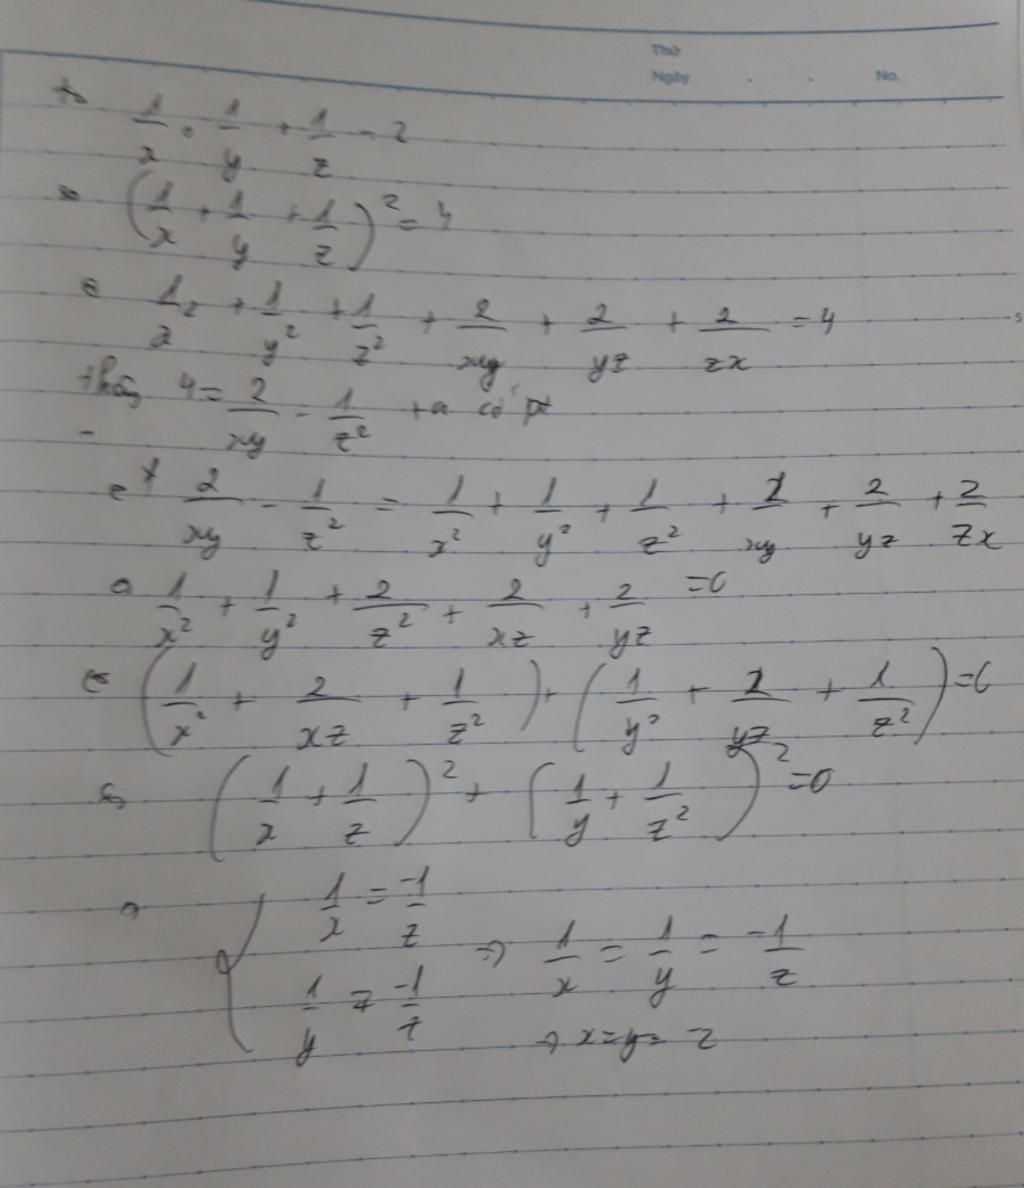 Thứ
Ngày . . No.
ta 1/x + 1/y + 1/z = 2
(1/x + 1/y + 1/z)² = 4
1/x² + 1/y² + 1/z² + 2/xy + 2/yz + 2/zx = 4
thay 4 = 2/xy - 1/z² ta có pt
2/xy - 1/z² = 1/x² + 1/y² + 1/z² + 2/xy + 2/yz + 2/zx
1/x² + 1/y² + 2/z² + 2/xz + 2/yz = 0
(1/x² + 2/xz + 1/z²) + (1/y² + 2/yz + 1/z²) = 0
(1/x + 1/z)² + (1/y + 1/z²)² = 0
{ 1/x = -1/z
1/y = -1/z
=> 1/x = 1/y = -1/z
=> x = y = -z